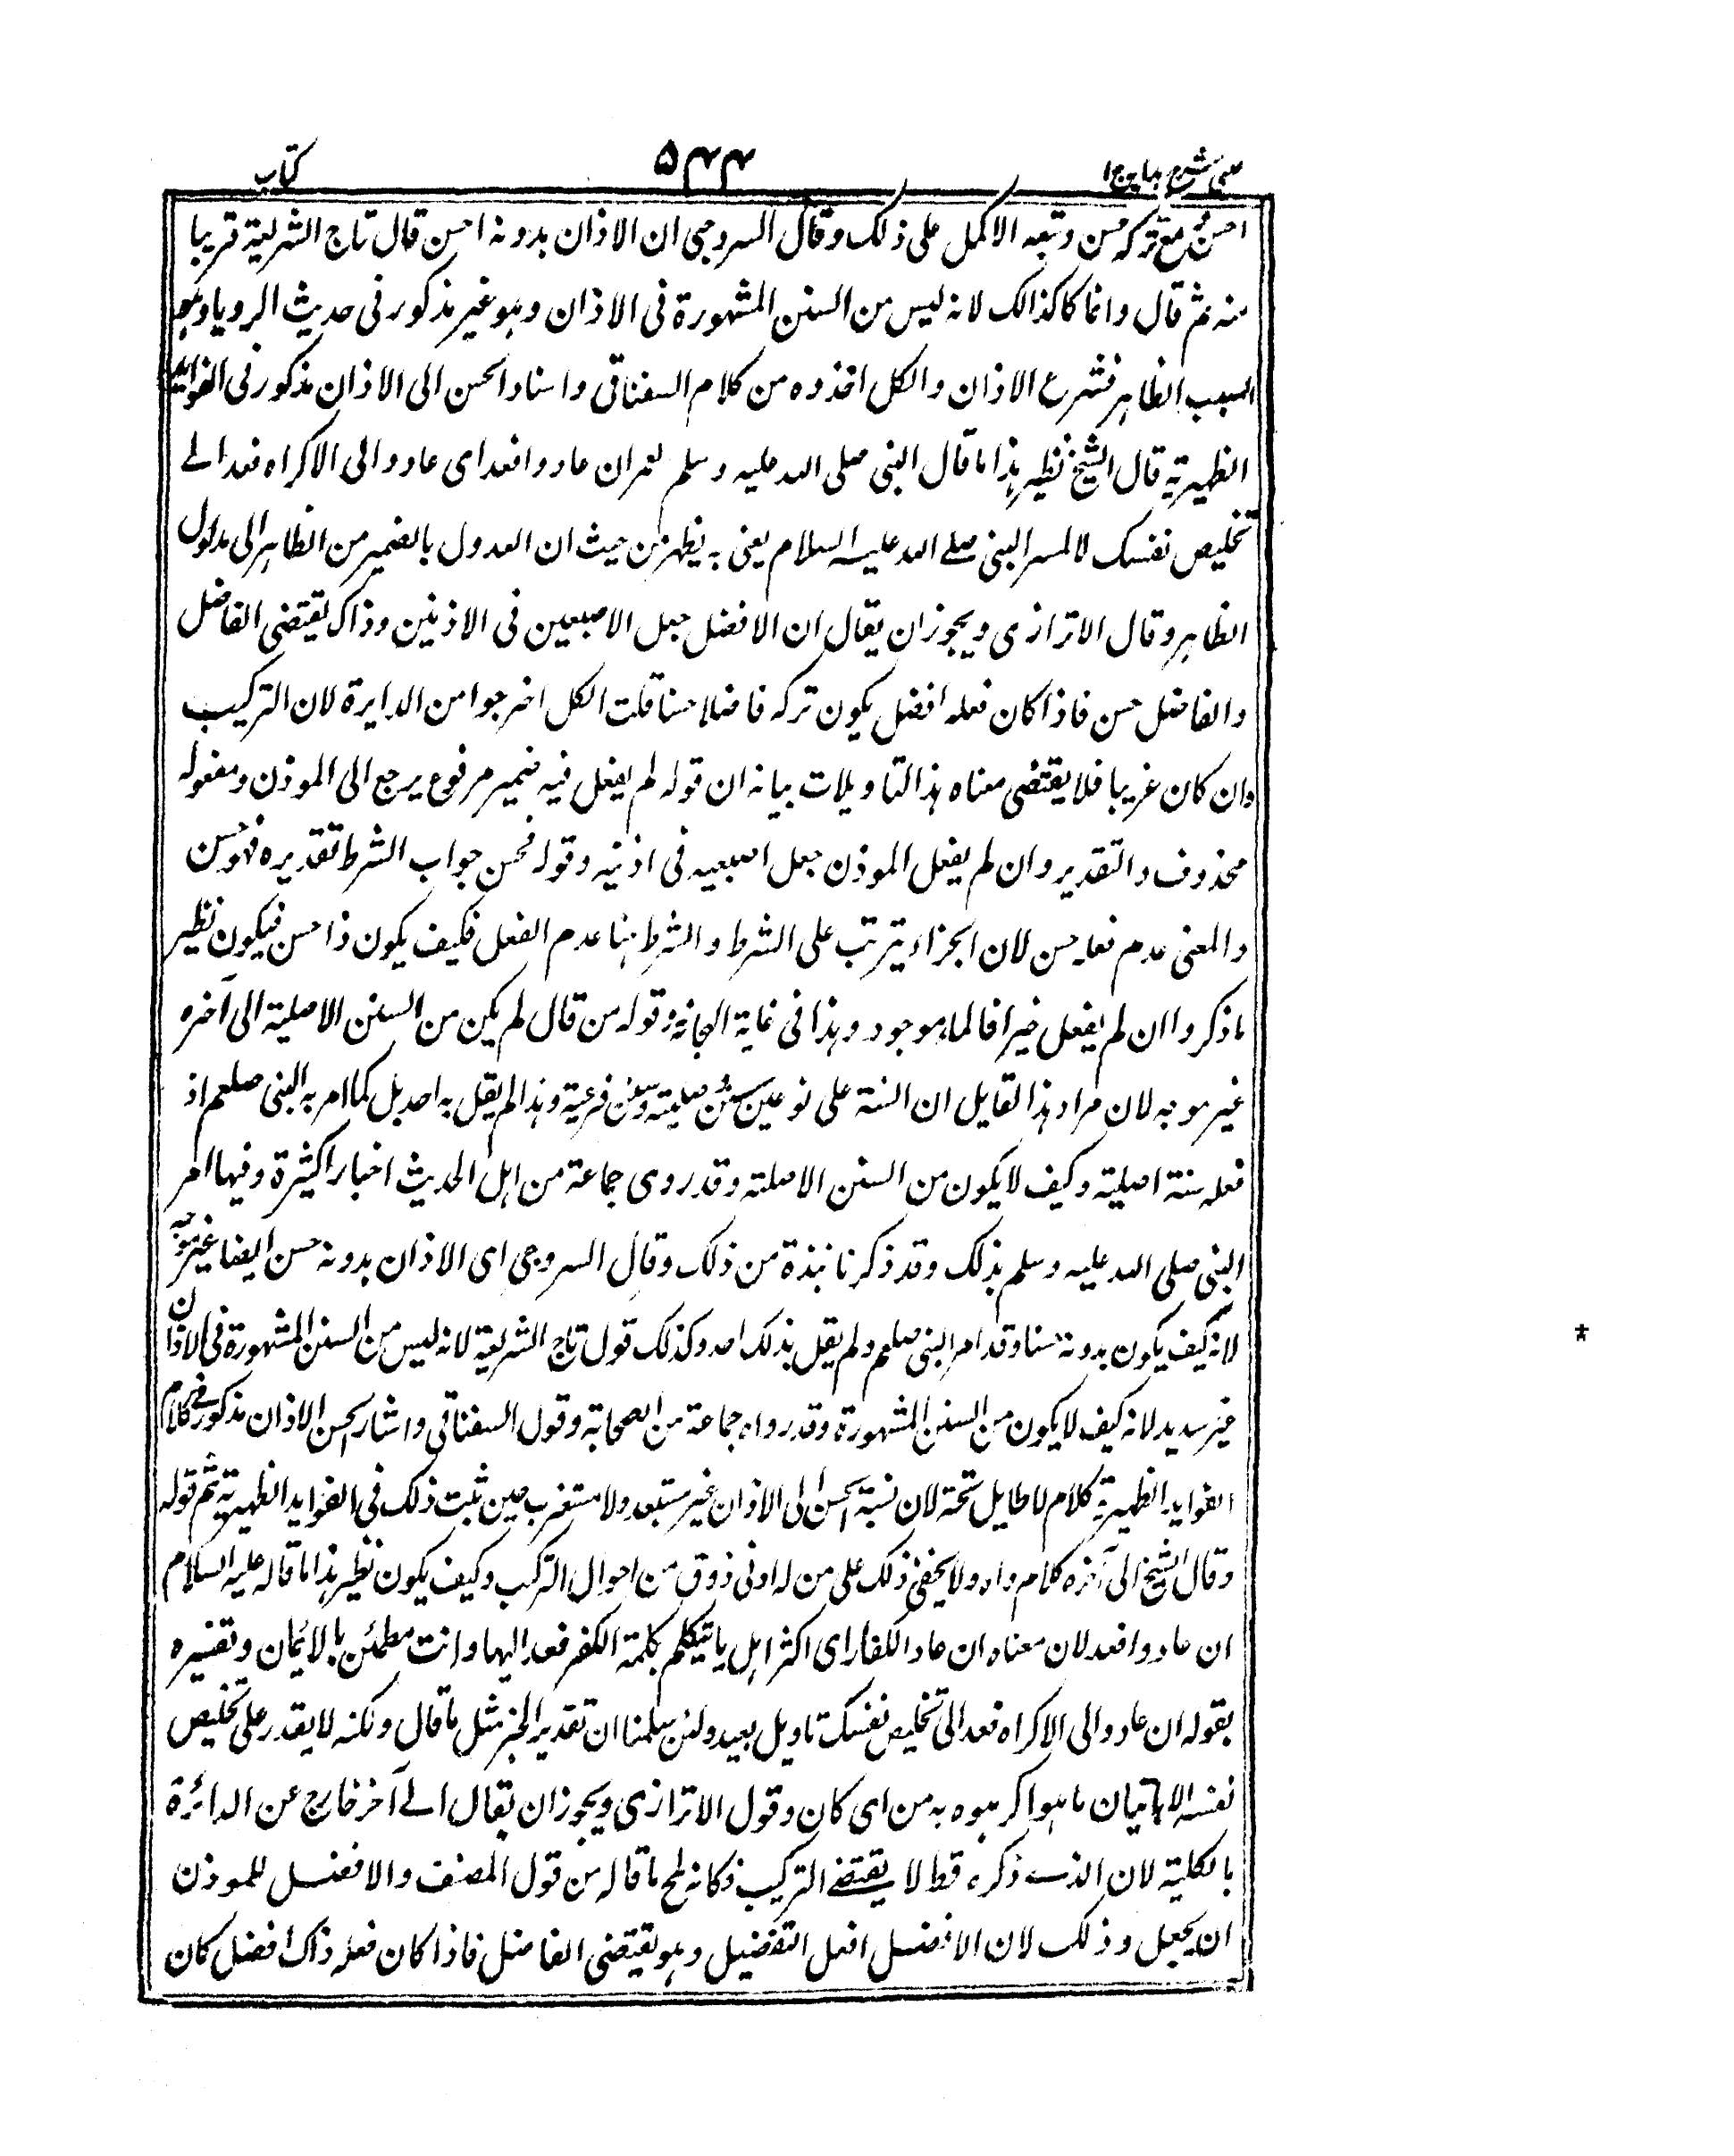 عینی شرح ہدایہ ج ا
۵۴۴
کتاب
احسن مع ترکه حسن وتبعه الاکمل علی ذلک وقال السروجی ان الاذان بدونه احسن قال تاج الشریعة قریبا
منه ثم قال وانما کا کذالک لانه لیس من السنن المشهورة فی الاذان وهو غیر مذکور فی حدیث الرویا وهو
السبب الظاهر فشرع الاذان والکل اخذوه من کلام السغناقی واسناد الحسن الی الاذان مذکور فی الفواید
الظهیریة قال الشیخ نظیر هذا ما قال النبی صلی الله علیه وسلم لعمر ان عادوا فعد ای عادوا الی الاکراه فعد الے
تخلیص نفسک لا لمسر النبی صلے الله علیه السلام یعنی به یظهر من حیث ان العدول بالضمیر من الظاهر الی مدلول
الظاهر وقال الاترازی ویجوز ان یقال ان الافضل جعل الاصبعین فی الاذنین وذاک یقتضی الفاضل
والفاضل حسن فاذا کان فعله افضل یکون ترکه فاضلا حسنا قلت الکل اخرجوا من الدایرة لان الترکیب
وان کان غریبا فلا یقتضی معناه هذا التاویلات بیانه ان قوله لم یفعل فیه ضمیر مرفوع یرجع الی الموذن ومفعوله
محذوف والتقدیر وان لم یفعل الموذن جعل اصبعیه فی اذنیه وقوله فحسن جواب الشرط تقدیره فهو حسن
والمعنی عدم فعله حسن لان الجزاء یترتب علی الشرط والشرط هنا عدم الفعل فکیف یکون ذا حسن فیکون نظیر
ما ذکروا ان لم یفعل خیرا فالماء موجود وهذا فی غایة وقوله من قال لم یکن من السنن الاصلیة الی آخره
غیر موجه لان مراد هذا القایل ان السنة علی نوعین سنن اصلیة وسنن فرعیة وهذا لم یقل به احد بل کما امر به النبی صلعم اذ
فعله سنة اصلیة وکیف لا یکون من السنن الاصلته وقد روی جماعة من اهل الحدیث اخبارا کثیرة وفیها امر
النبی صلی الله علیه وسلم بذلک وقد ذکرنا نبذة من ذلک وقال السروجی ای الاذان بدونه حسن ایضا غیر موجه
لانه کیف یکون بدونه حسنا وقد امر النبی صلعم ولم یقل بذلک احد وکذلک قول تاج الشریعة لانه لیس من السنن المشهورة فی الاذان
غیر سدید لانه کیف لا یکون من السنن المشهورة وقد رواه جماعة من الصحابة وقول السغناقی واشار الحسن الاذان مذکور فی کلام
الفواید الظهیریة کلام لا طایل تحته لان نسبة الحسن الی الاذان غیر مستبعد ولا مستغرب حین ثبت ذلک فی الفواید الظهیریة ثم قوله
وقال الشیخ الی آخره کلام واه ولا یخفی ذلک علی من له ادنی ذوق من احوال الترکیب وکیف یکون نظیر هذا ما قاله علیه السلام
ان عادوا فعد لان معناه ان عاد الکفار ای اکثر اهل یا بتکلم بکلمة الکفر فعد الیها وانت مطمئن بالایمان وتفسیره
بقوله ان عادوا الی الاکراه فعد الی تخلیص نفسک تاویل بعید ولئن سلمنا ان تقدیر الخبر مثل ما قال ولکنه لا یقدر علی تخلیص
نفسه الا باتیان ما هو اکرهوه به من ای کان وقول الاترازی ویجوز ان یقال الے آخر خارج عن الدائرة
بالکلیة لان الذے ذکره قط لا یقتضے الترکیب فکانه لمح ما قاله من قول المصنف والافضل للموذن
ان یجعل وذلک لان الافضل افعل التفضیل وهو یقتضی الفاضل فاذا کان فعله ذاک افضل کان
*